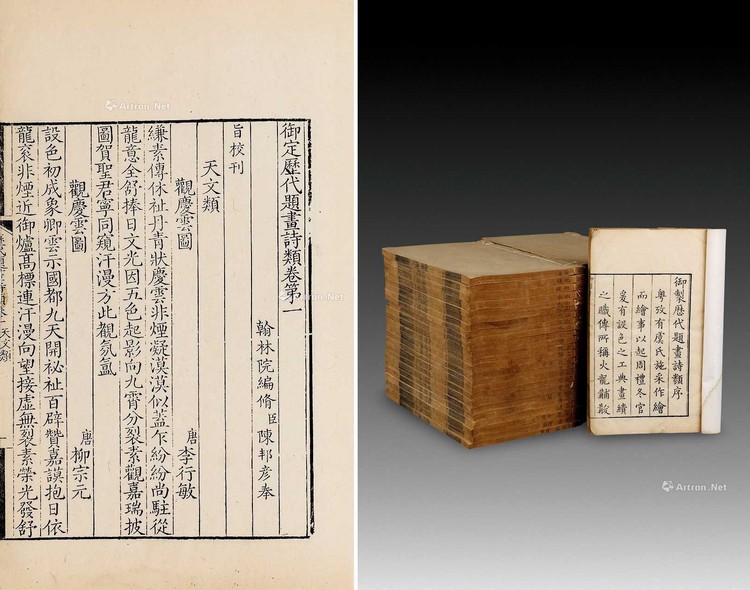 御定歷代題畫詩類卷第一
翰林院編脩臣陳邦彥奉
旨校刊
天文類
觀慶雲圖
唐 李行敏
縑素傳休祉丹青狀慶雲非煙凝漠漠似蓋乍紛紛尚駐從
龍意全舒捧日文光因五色起影向九霄分裂素觀嘉瑞披
圖賀聖君寧同窺汗漫方此觀氛氳
觀慶雲圖
唐 柳宗元
設色初成象卿雲示國都九天開祕祉百辟贊嘉謨抱日依
龍衮非煙近御爐高標連汗漫向望接虛無裂素榮光發舒
天文類
御製歷代題畫詩類序
粵攷有虞氏施采作繪
而繪事以起周禮冬官
爰有設色之工典畫繢
之職傳所稱火龍黼黻
Artron.Net
Artron.Net
Artron.Net